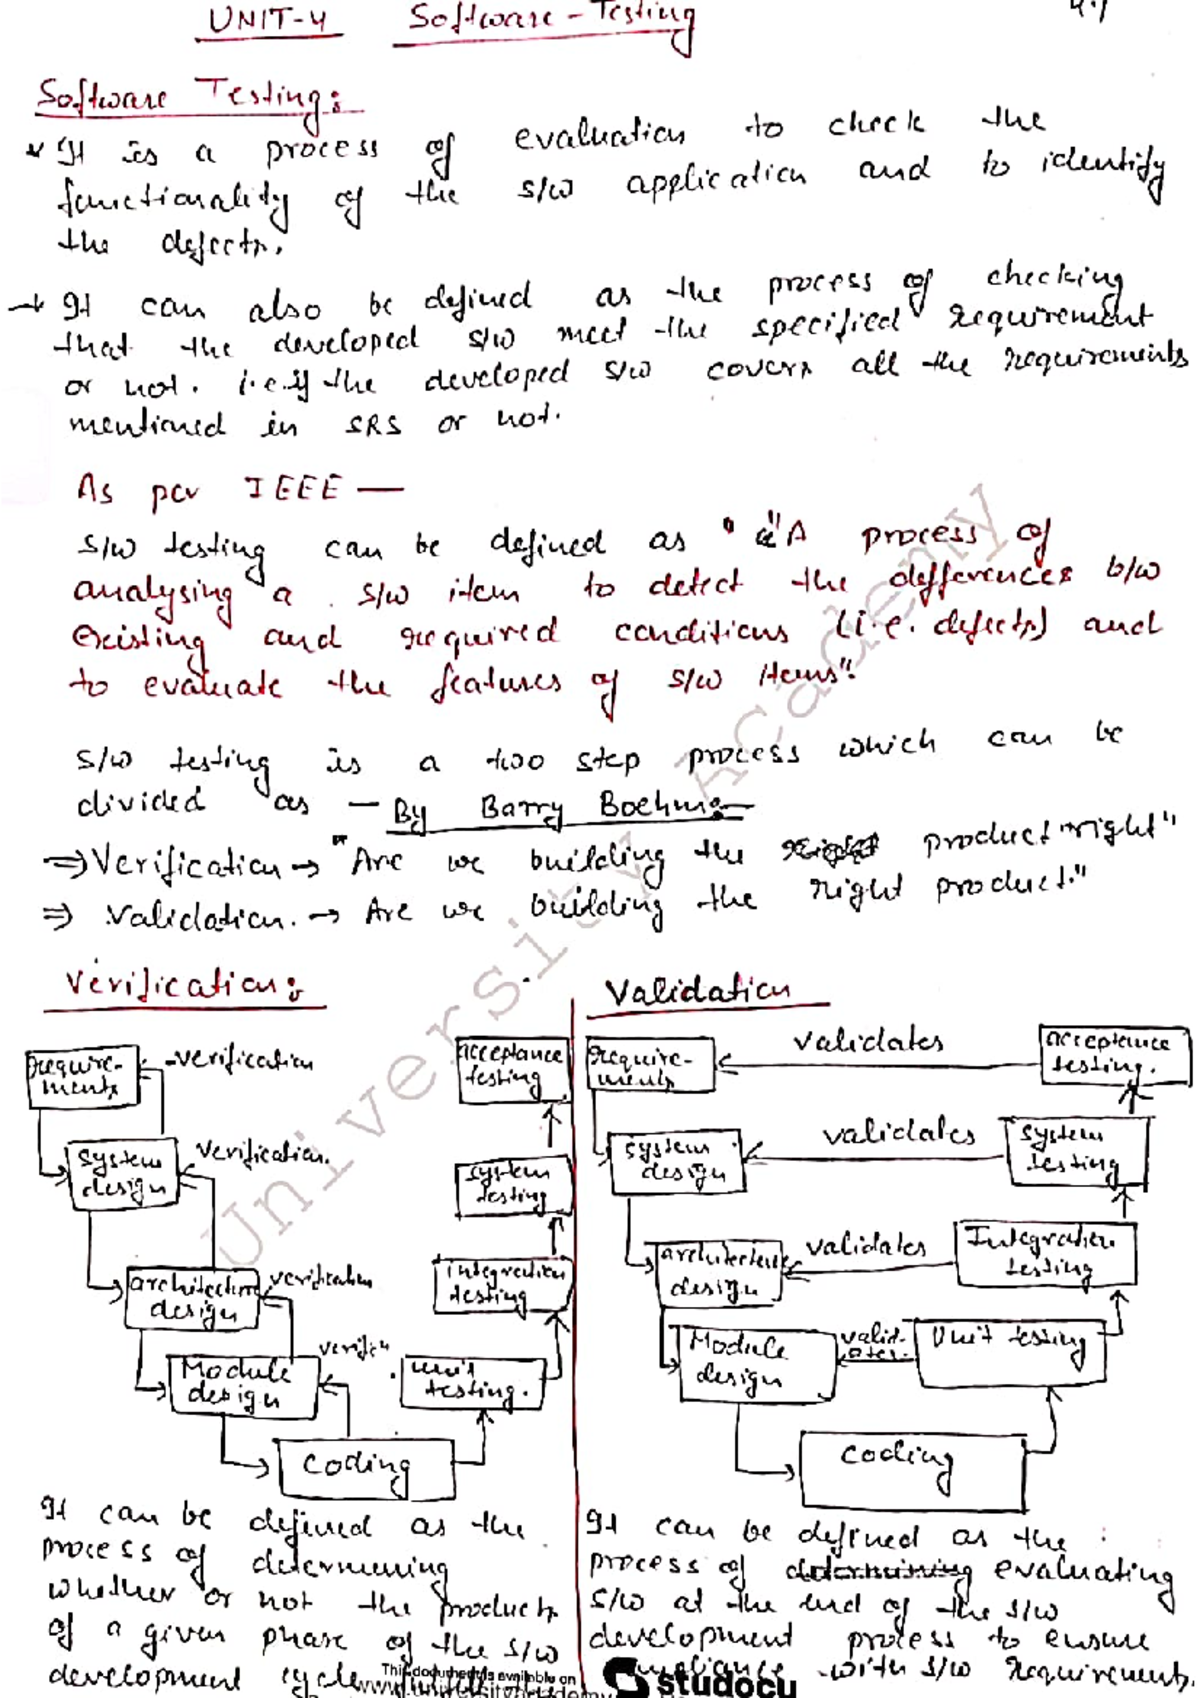 UNIT-4 Software-Testing
4.1
Software Testing:
It is a process of evaluation to check the
functionality of the s/w application and to identify
the defects.
→ It can also be defined as the process of checking
that the developed s/w meet the specified requirement
or not. i.e. if the developed s/w covers all the requirements
mentioned in SRS or not.
As per IEEE —
S/w testing can be defined as "A process of
analysing a s/w item to detect the differences b/w
existing and required conditions (i.e. defects) and
to evaluate the features of s/w items".
S/w testing is a two step process which can be
divided as — By Barry Boehm:—
⇒ Verification → "Are we building the product "right"
⇒ Validation. → Are we building the right product."
Verification:
requirements
verification
system design
verification.
architecture design
verification
Module design
verifn
Coding
unit testing.
integration testing
system testing
acceptance testing
Validation
require-
ments
validates
acceptance
testing.
system
design
validates
system
testing
architecture
design
validates
Integration
testing
Module
design
valid-
ates.
Unit testing
Coding
It can be defined as the
process of determining
whether or not the products
of a given phase of the s/w
development cycle
It can be defined as the
process of evaluating
s/w at the end of the s/w
development process to ensure
compliance with s/w requirements.
University Academy
This document is available on
studocu